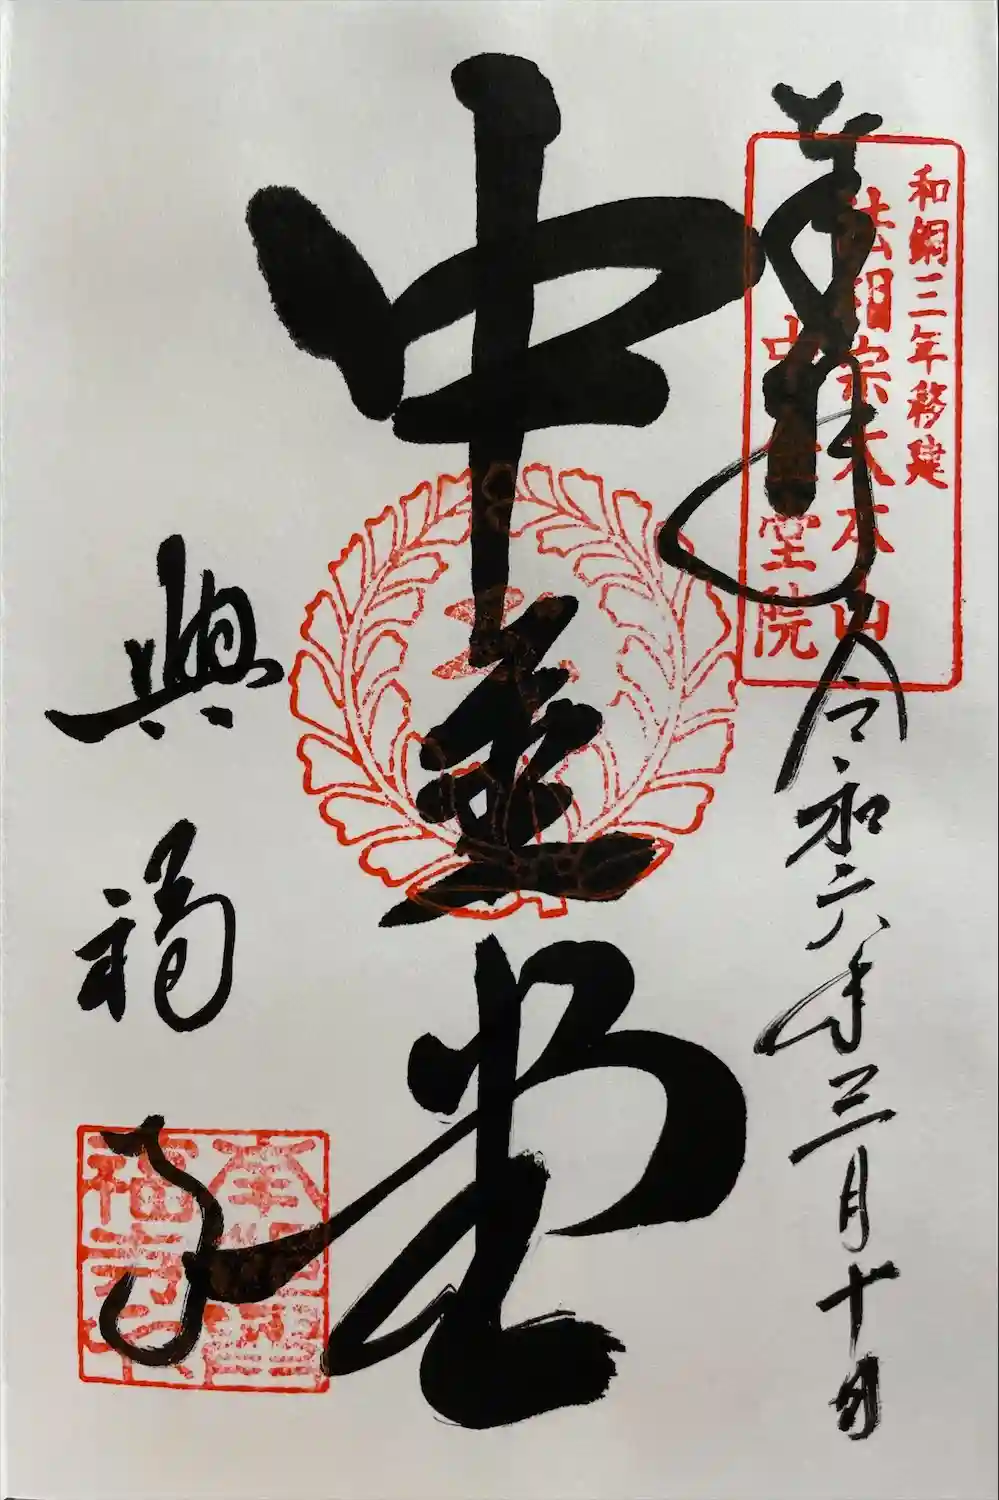 奉拝
令和六年三月十日
和銅三年移建
法相宗大本山
中金堂院
中金堂
興福寺